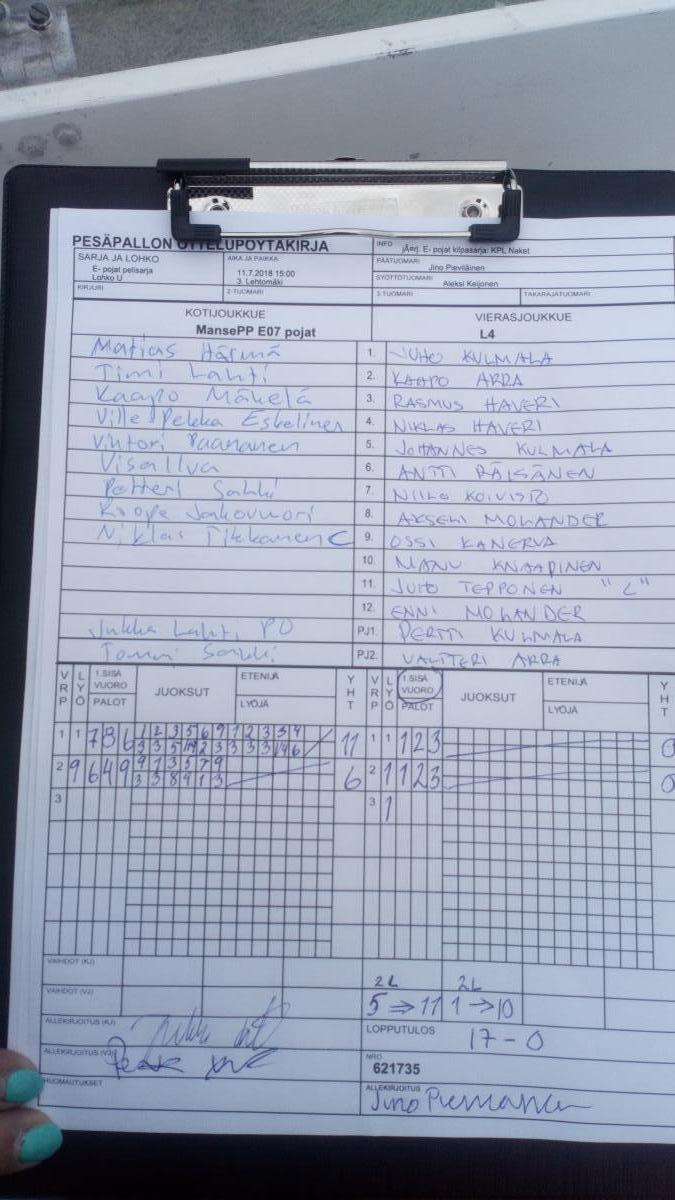 PESÄPALLON OTTELUPÖYTÄKIRJA
SARJA JA LOHKO
E- pojat pelisarja
Lohko U
AIKA JA PAIKKA
11.7.2018 15:00
3. Lehtomäki
INFO jÄrrj. E- pojat kilpasarja: KPL Naket
PÄÄTUOMARI
Jino Pieviläinen
SYÖTTÖTUOMARI
Aleksi Keijonen
KIRJURI
2-TUOMARI
3-TUOMARI
TAKARAJATUOMARI
KOTIJOUKKUE
MansePP E07 pojat
VIERASJOUKKUE
L4
Matias Härmä 1. JUHO KULMALA
Timi Lahti 2. KAAPO ARRA
Kaapo Mäkelä 3. RASMUS HAVERI
Ville Pekka Eskelinen 4. NIKLAS HAVERI
Vihtori Paananen 5. JOHANNES KULMALA
Visa Ilva 6. ANTTI RÄISÄNEN
Petteri Sahki 7. NIILO KOIVISTO
Roope Jakovuori 8. AKSELI MOLANDER
Niklas Pikkanen C 9. OSSI KANERVA
10. MANU KNAAPINEN
11. JUHO TEPPONEN "L"
12. ENNI MOLANDER
Jukka Lahti PO PJ1. PERTTI KULMALA
Tommi PJ2. VALTTERI ARRA
VRP LYÖ 1.SISÄ VUORO PALOT JUOKSUT ETENIJÄ LYÖJÄ YHT VRP LYÖ 1.SISÄ VUORO PALOT JUOKSUT ETENIJÄ LYÖJÄ YHT
1 1 7 8 6 1 2 3 5 6 9 1 2 3 3 4 11 1 1 1 2 3 0
2 9 6 4 9 9 1 3 5 7 9 6 2 1 1 2 3 0
3 3 8 9 1 3
3 3 1
VAIHDOT (KJ)
VAIHDOT (VJ)
2L 2L
5 ⇒ 11 1 → 10
ALLEKIRJOITUS (KJ)
LOPPUTULOS 17 - 0
ALLEKIRJOITUS (VJ)
NRO
621735
HUOMAUTUKSET
ALLEKIRJOITUS